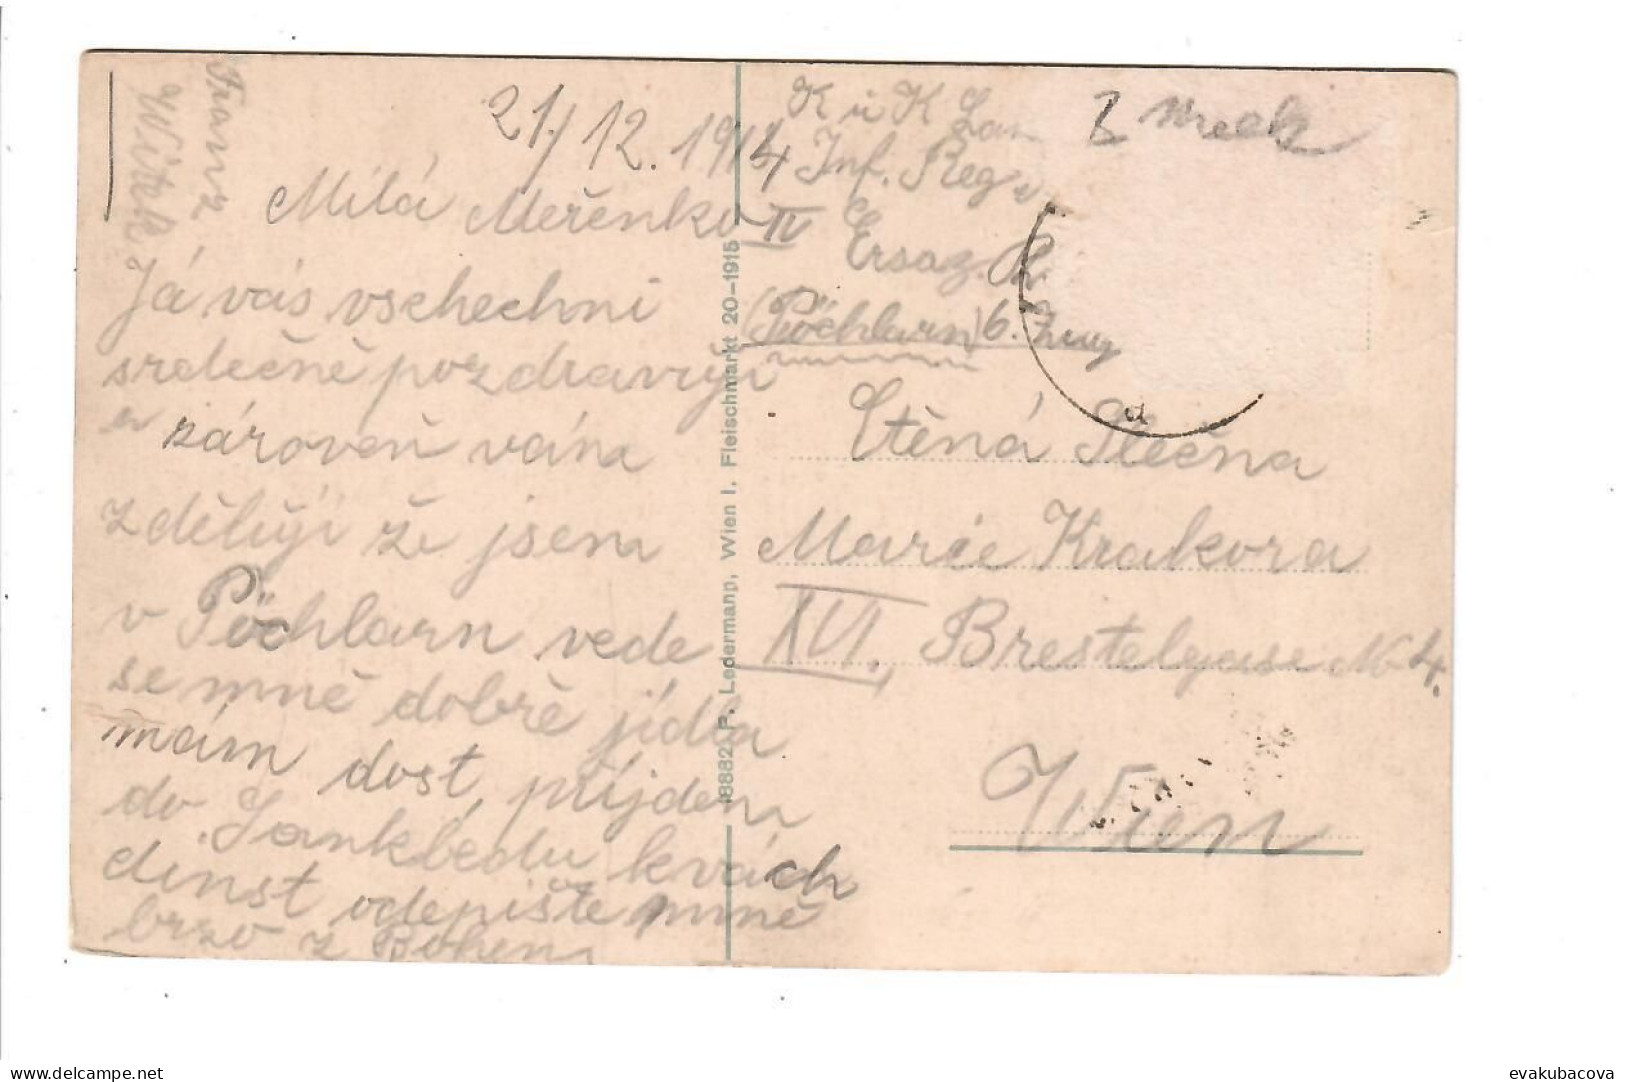 Franz
Witek
21/12. 1914
Milá Meřénko
Já vás vschechni
srdečně pozdravuji
a zároveň vám
zděluji že jsem
v Pöchlarn vede
se mně dobře jídla
mám dost, přijdem
do
dinst odepište mně
brzo z Bohem
18882 P. Ledermann, Wien I. Fleischmarkt 20-1915
K u K
Inf. Reg
IV Ersaz
(Pöchlarn) 6. Zug
Ctěná Slečna
Marie Krakora
XVI. Brestelgase No 4.
Wien
delcampe.net
evakubacova